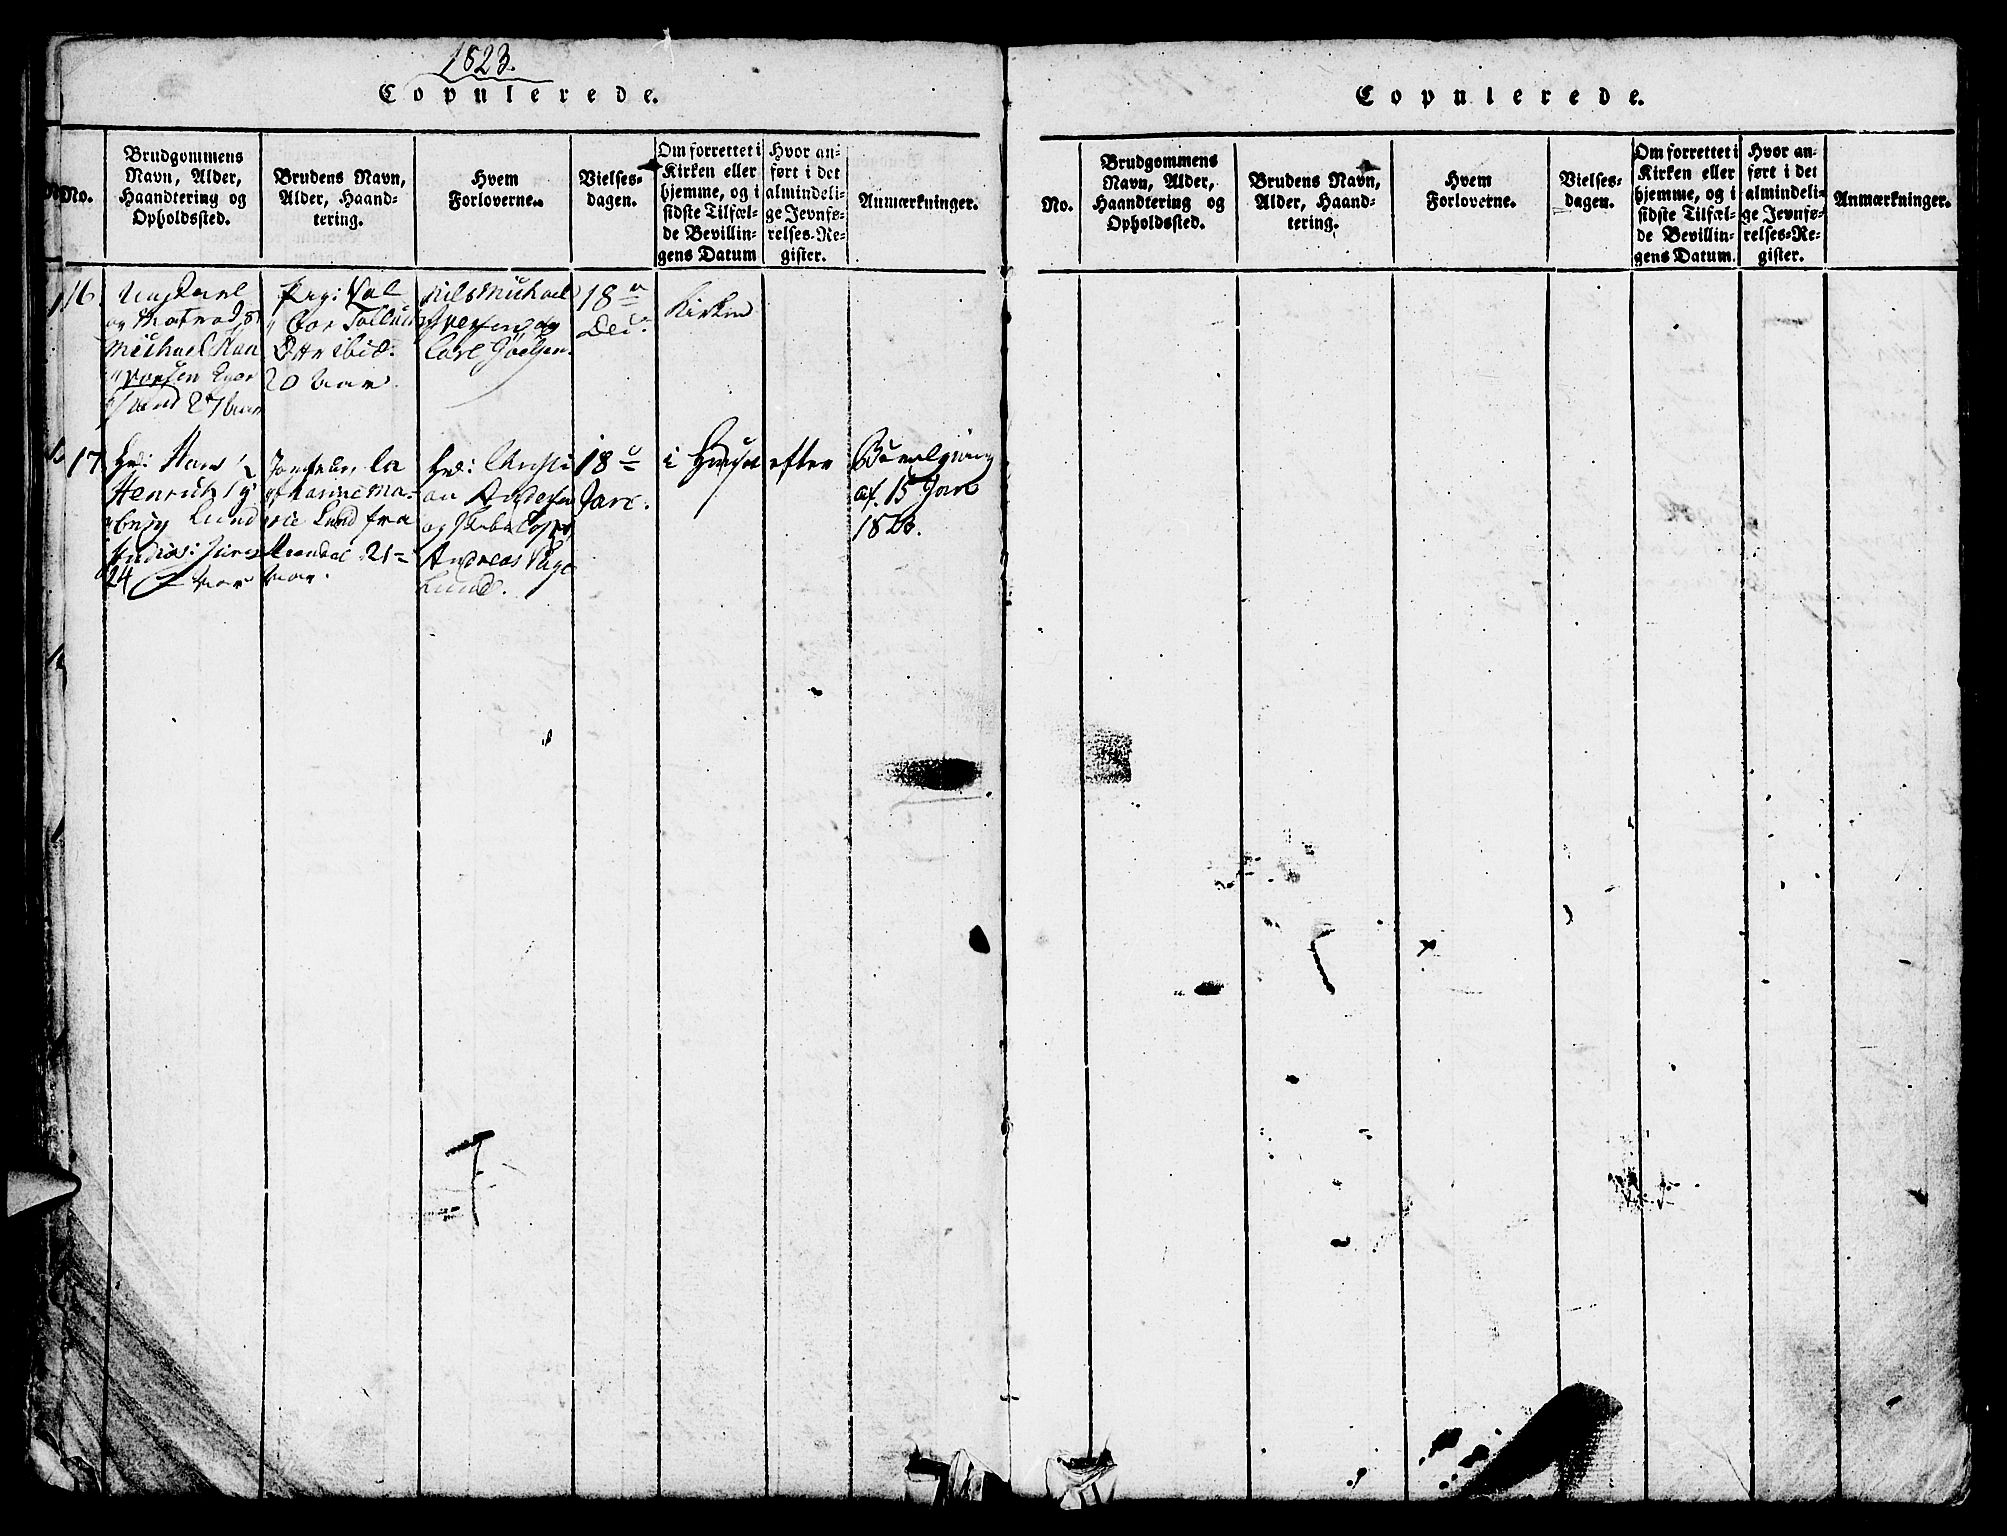 1823.
Copulerede.
No.
Brudgommens
Navn, Alder,
Haandtering og
Opholdssted.
Brudens Navn,
Alder, Haand-
tering.
Hvem
Forloverne.
Vielses-
dagen.
Om forrettet i
Kirken eller
hjemme, og i
sidste Tilfæl-
de Bevillin-
gens Datum
Hvor an-
ført i det
almindeli-
ge Jevnfø-
relses-Re-
gister.
Anmærkninger.
16.
Ungkarl
og Matros
Michael Han
Eger
sund 27 Aar
Pige
20 Aar.
Nils Michael
Iversen og
Carl
18
Dec.
Kirken
17
Hr: Hans
Henrich
Lund
24 Aar
Jomfrue
Ma-
rie Lund fra
21
Aar.
Hr: Christi
an Andersen
og
Andreas
Lund.
18
Jan.
i Huset
efter
Bevilgning
af 15 Jan
1823.
Copulerede.
No.
Brudgommens
Navn, Alder,
Haandtering og
Opholdssted.
Brudens Navn,
Alder, Haand-
tering.
Hvem
Forloverne.
Vielses-
dagen.
Om forrettet i
Kirken eller
hjemme, og i
sidste Tilfæl-
de Bevillin-
gens Datum.
Hvor an-
ført i det
almindeli-
ge Jevnfø-
relses-Re-
gister.
Anmærkninger.